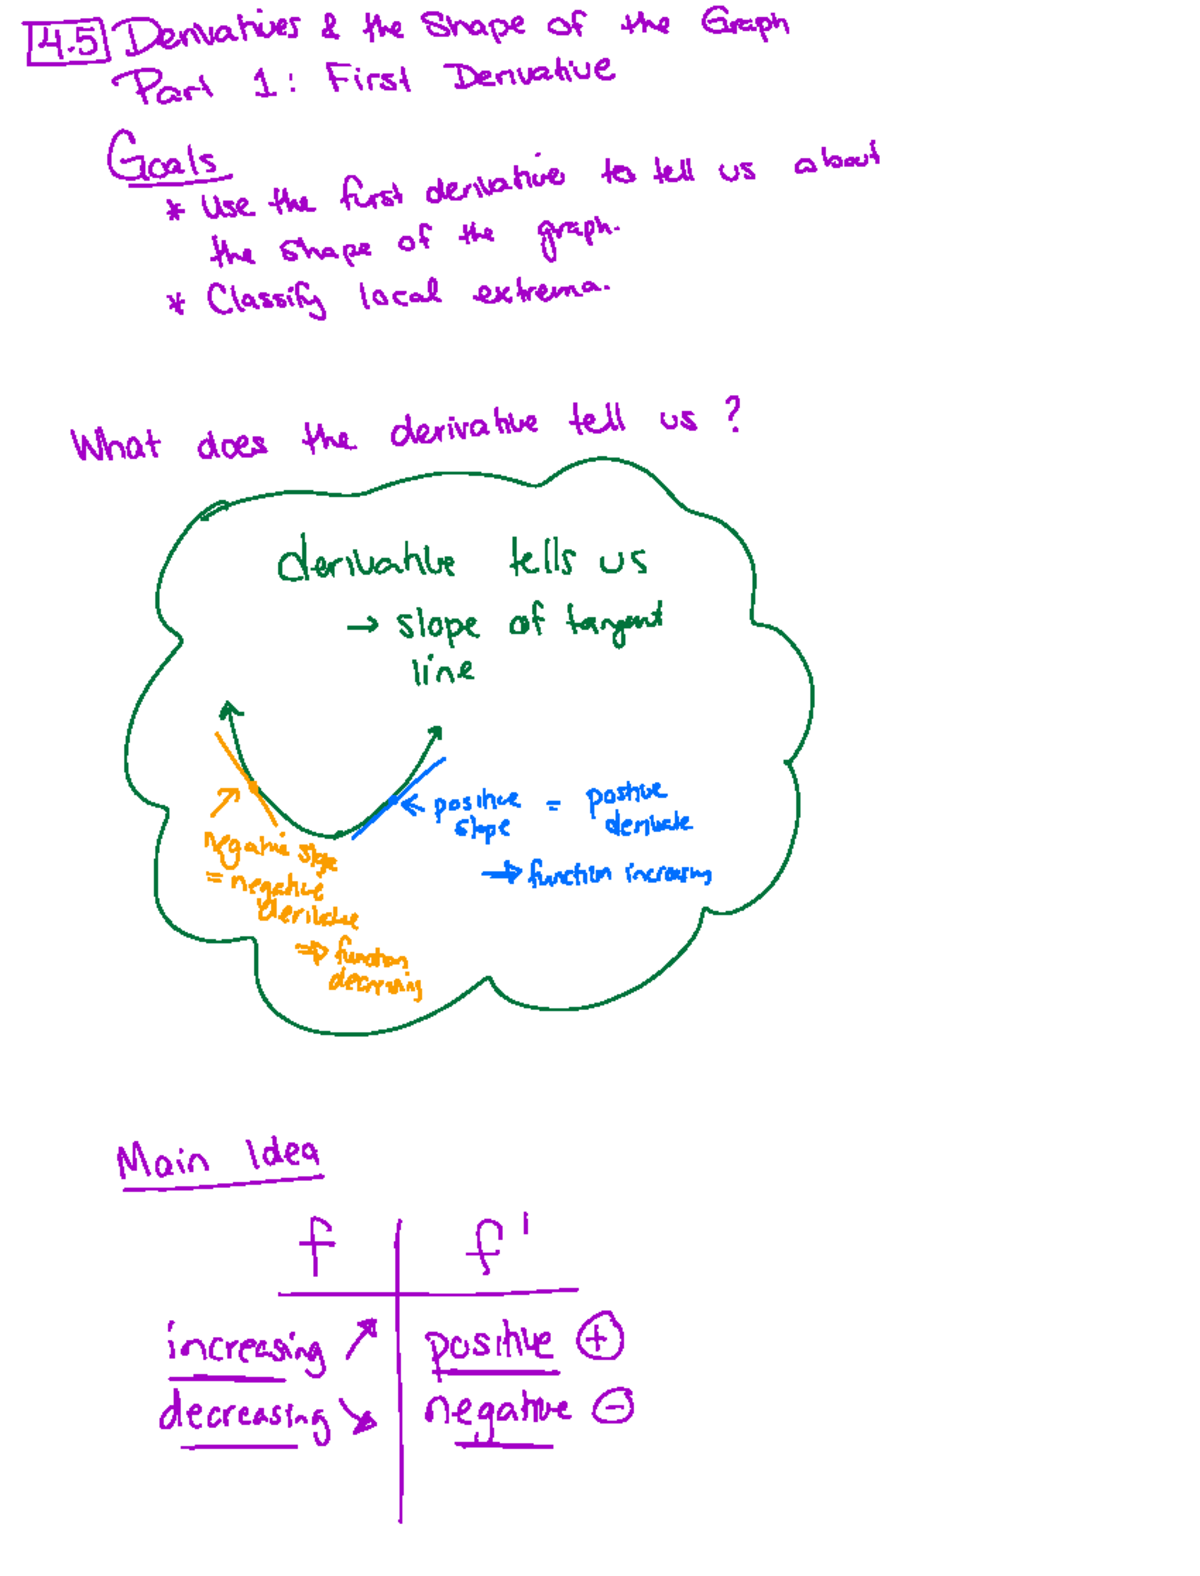 4.5 Derivatives & the Shape of the Graph
Part 1: First Derivative
Goals
* Use the first derivative to tell us about
the shape of the graph.
* Classify local extrema.
What does the derivative tell us?
derivative tells us
→ slope of tangent
line
← positive slope = positive derivative
⇒ function increasing
negative slope
= negative
derivative
⇒ function
decreasing
Main Idea
f | f'
increasing ↗ | positive ⊕
decreasing ↘ | negative ⊖